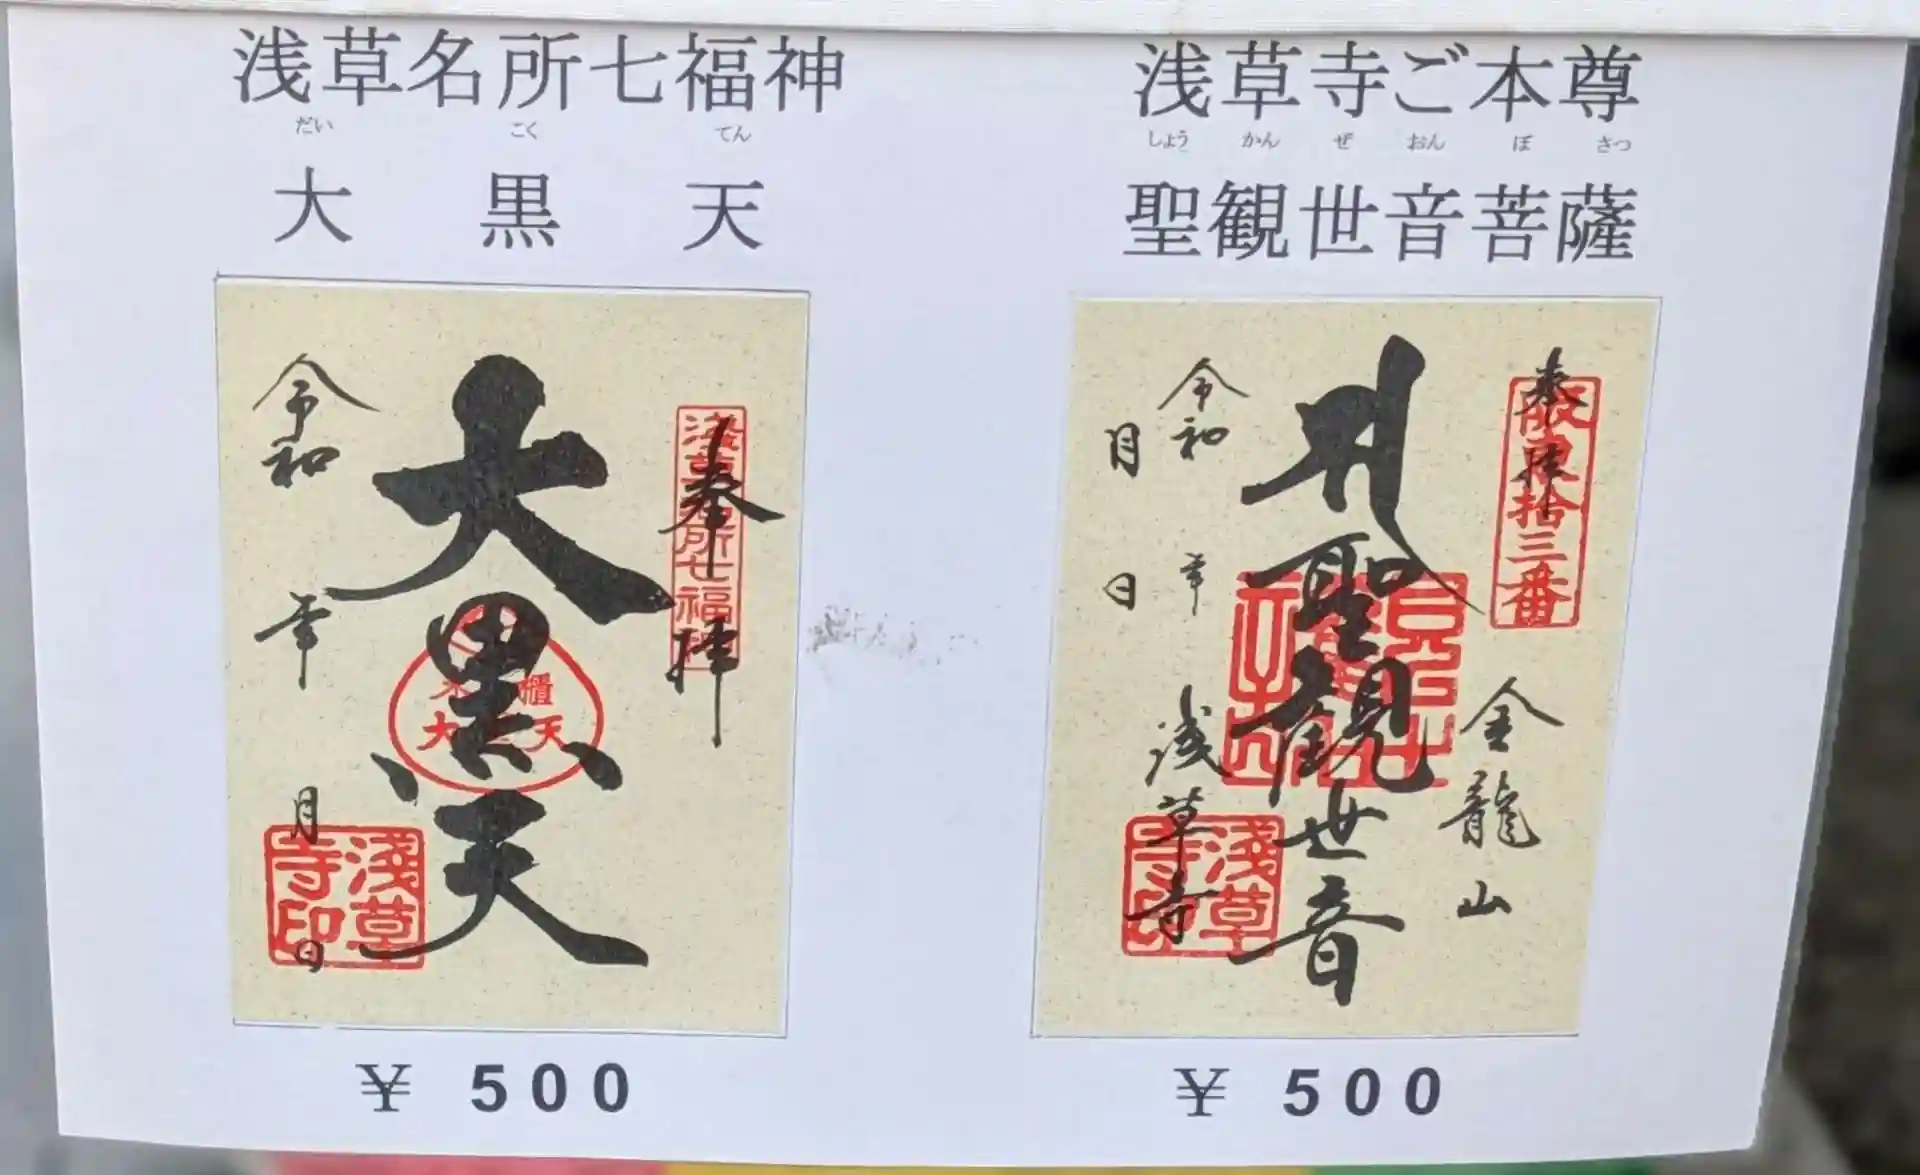 浅草名所七福神
だい こく てん
大黒天
令和 年 月 日
大黒天
奉拝
浅草名所七福神
大 天
淺草寺印
¥ 500
浅草寺ご本尊
しょう かん ぜ おん ぼ さつ
聖観世音菩薩
奉拝
坂東拾三番
金龍山
聖観世音
令和 年
月 日
浅草寺
淺草寺印
¥ 500